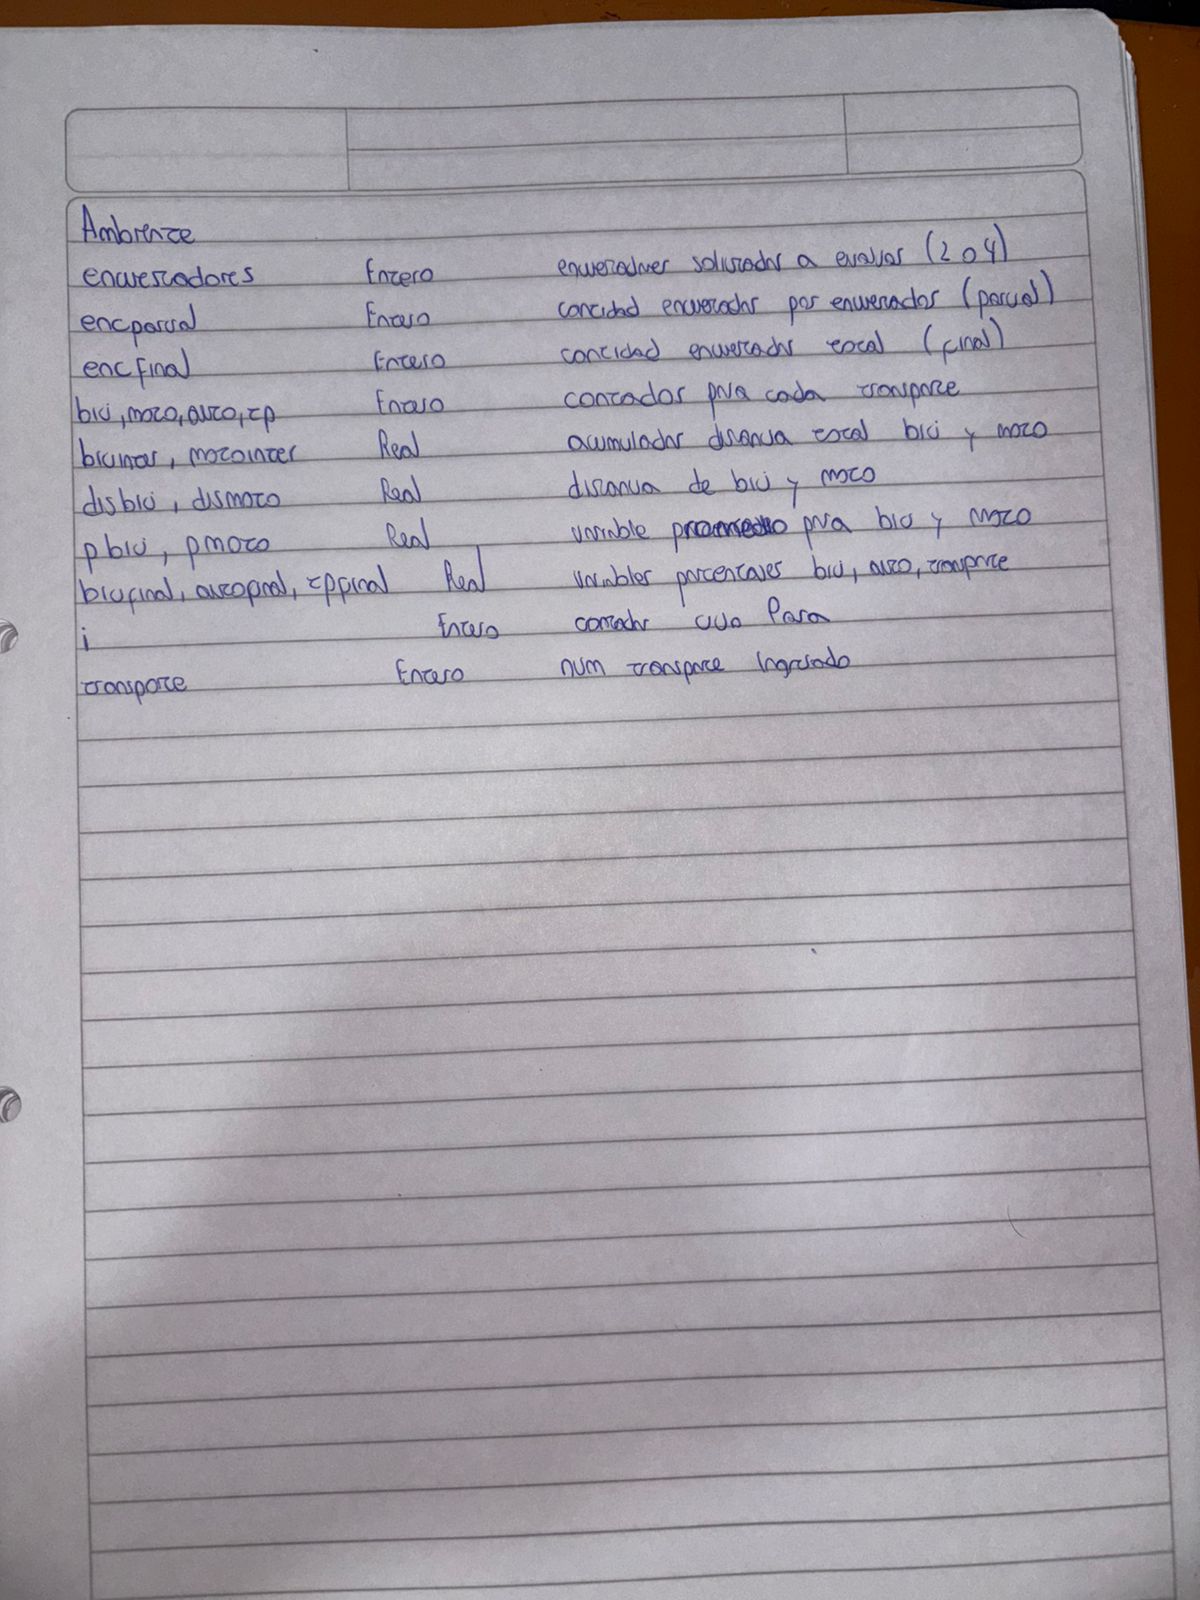 Ambiente
encuestadores Entero encuestadores solicitados a evaluar (2 o 4)
encparcial Entero cantidad encuestados por encuestador (parcial)
encfinal Entero cantidad encuestados total (final)
bici, moto, auto, tp Entero contador para cada transporte
Real acumulador distancia total bici y moto
disbici, dismoto Real distancia de bici y moto
pbici, pmoto Real variable promedio para bici y moto
bicifinal, autofinal, tpfinal Real variables porcentajes bici, auto, transporte
i Entero contador ciclo Para
transporte Entero num transporte ingresado